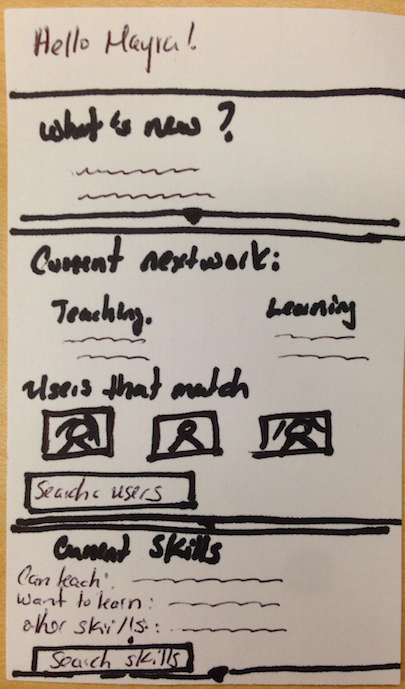 Hello Mayra!
What's new?
Current nextwork:
Teaching. Learning
Users that match
Search users
Current skills
Can teach:
want to learn:
other skills:
Search skills